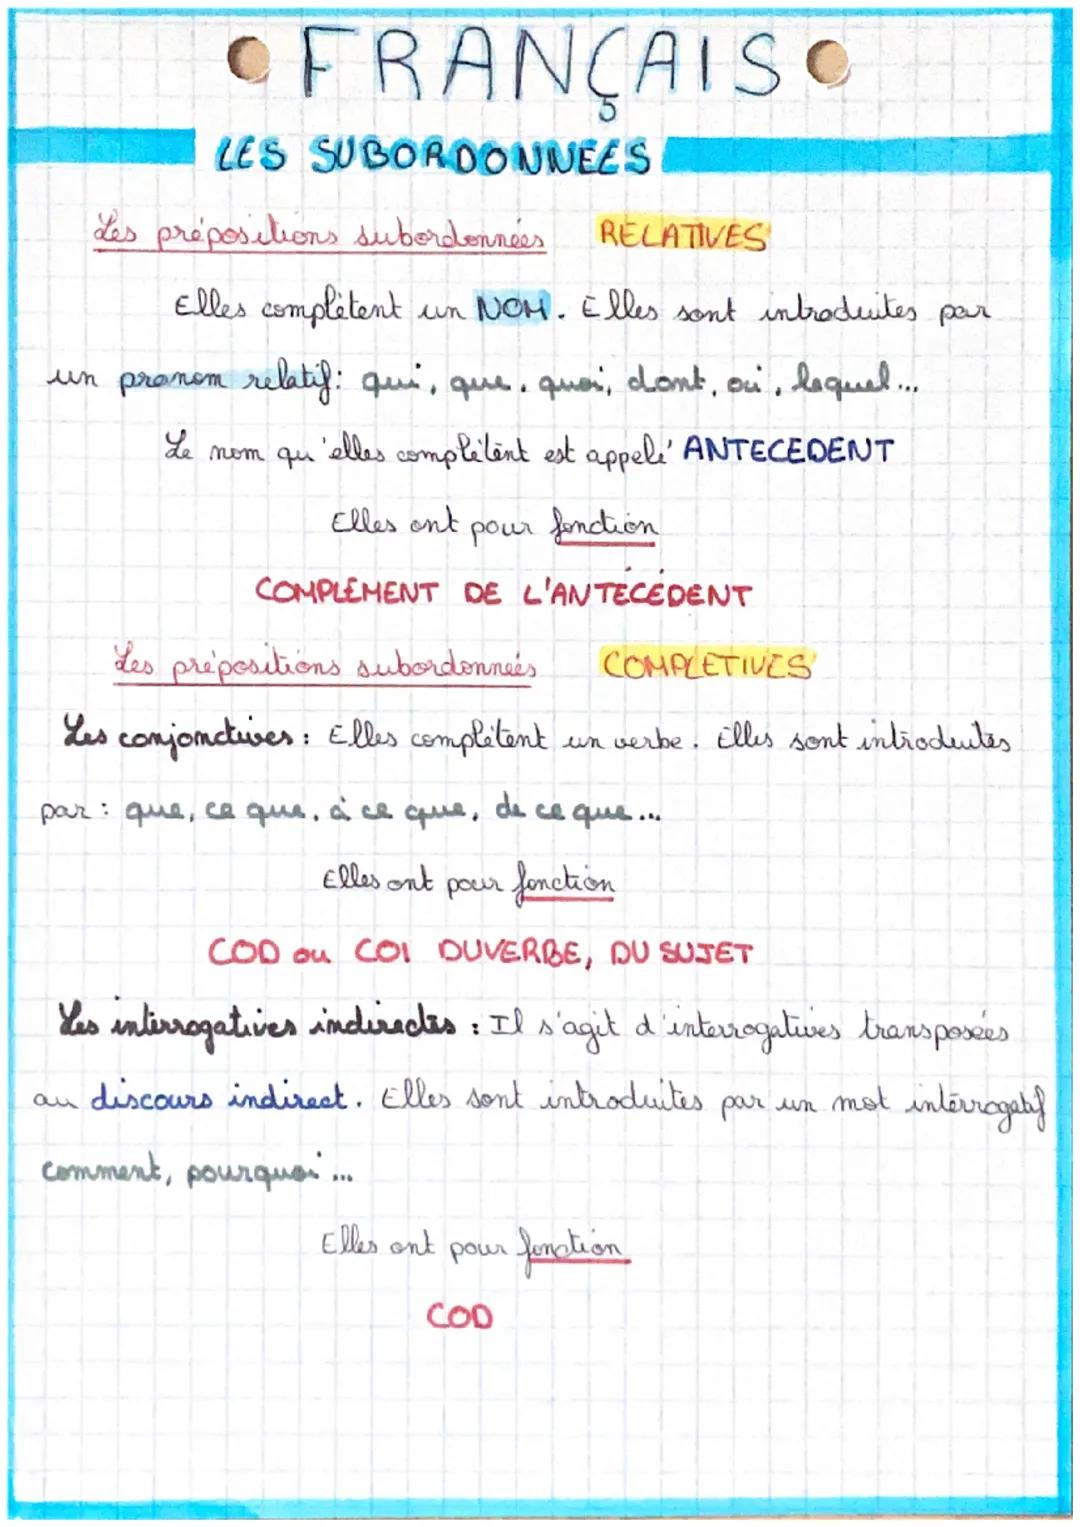 FRANÇAIS
LES SUBORDONNEES
Les prépositions subordonnées RELATIVES
Elles complètent un NOM. Elles sont introduites par
un pronom relatif: qui, que, quoi, dont, où, lequel...
Le nom qu'elles complètent est appelé ANTECEDENT
Elles ont pour fonction
COMPLEMENT DE L'ANTÉCÉDENT
Les prépositions subordonnées COMPLETIVES
Les conjonctives : Elles complètent un verbe. Elles sont introduites
par : que, ce que, à ce que, de ce que...
Elles ont pour fonction
COD ou COI DUVERBE, DU SUJET
Les interrogatives indirectes : Il s'agit d'interrogatives transposées
au discours indirect. Elles sont introduites par un mot interrogatif
comment, pourquoi...
Elles ont pour fonction
COD